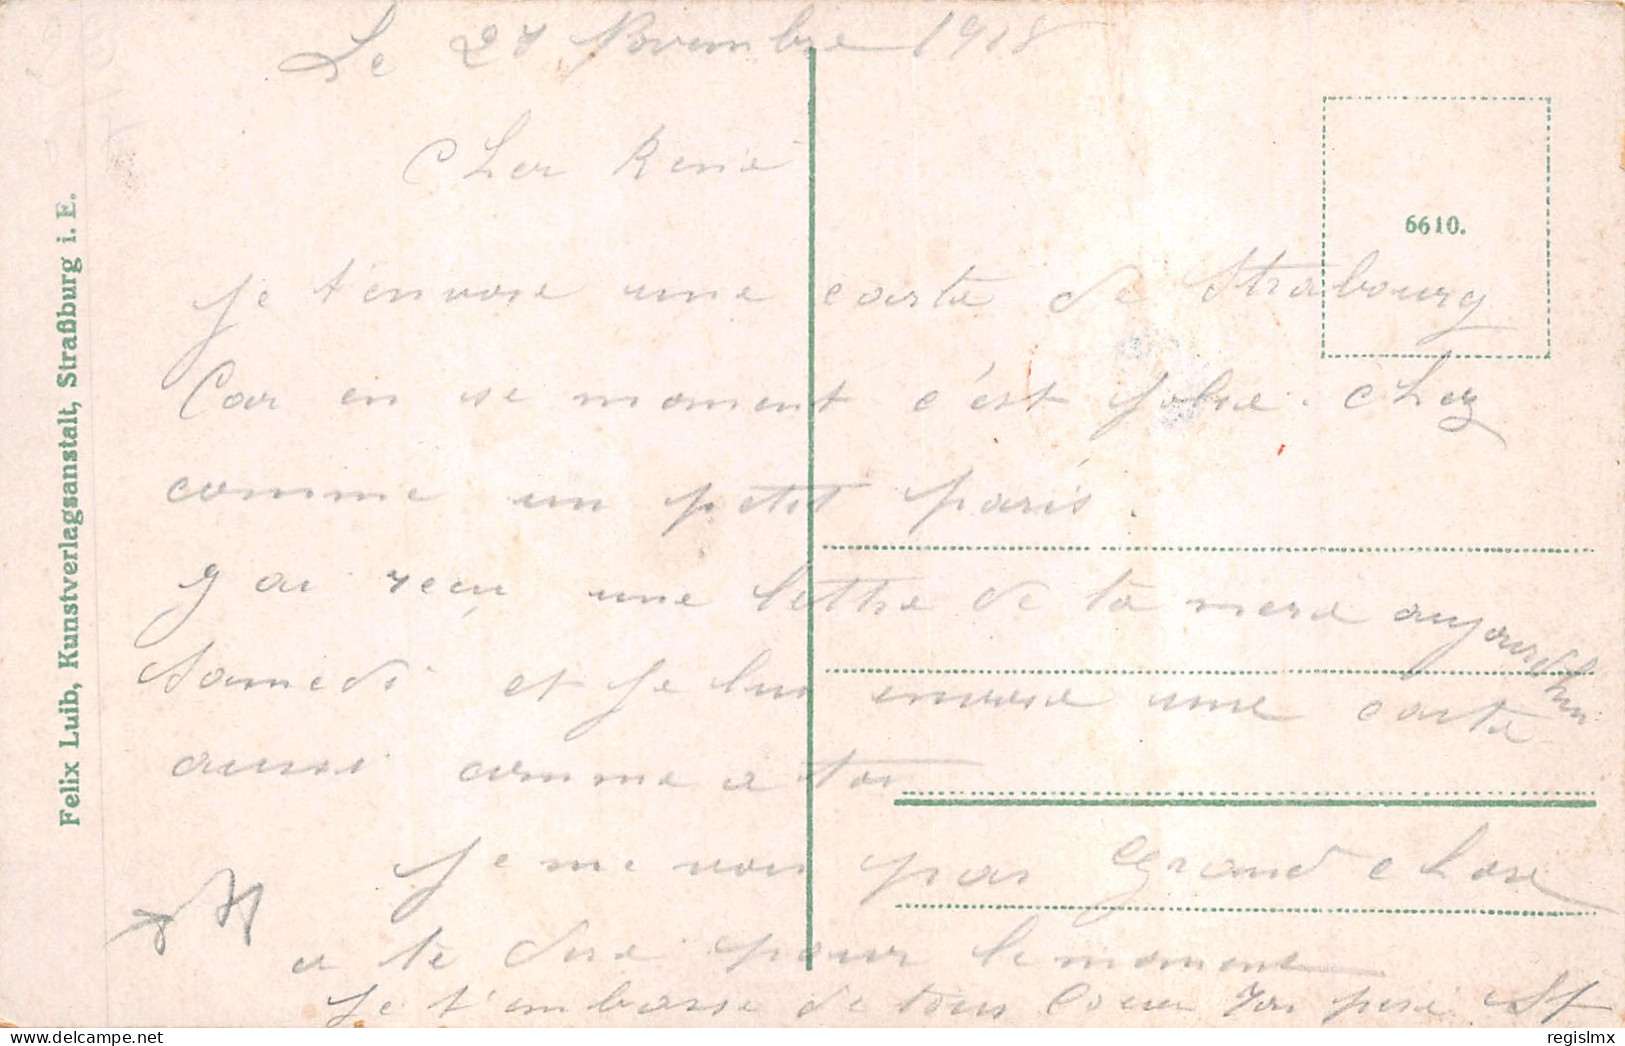 Le 27 Novembre 1918
Cher René
Je t'envoie une carte de Strabourg
Car en se moment c'est folie. chez
comme un petit paris.
J ai reçu une lettre de ta mere aujourdhui
Samedi et je lui envoie une carte
aussi comme a toi
Je me vois pas grand chose
a te dire pour le moment
Je t'embrasse de tous Coeur Ton pere
6610.
Felix Luib, Kunstverlagsanstalt, Straßburg i. E.
regislmx